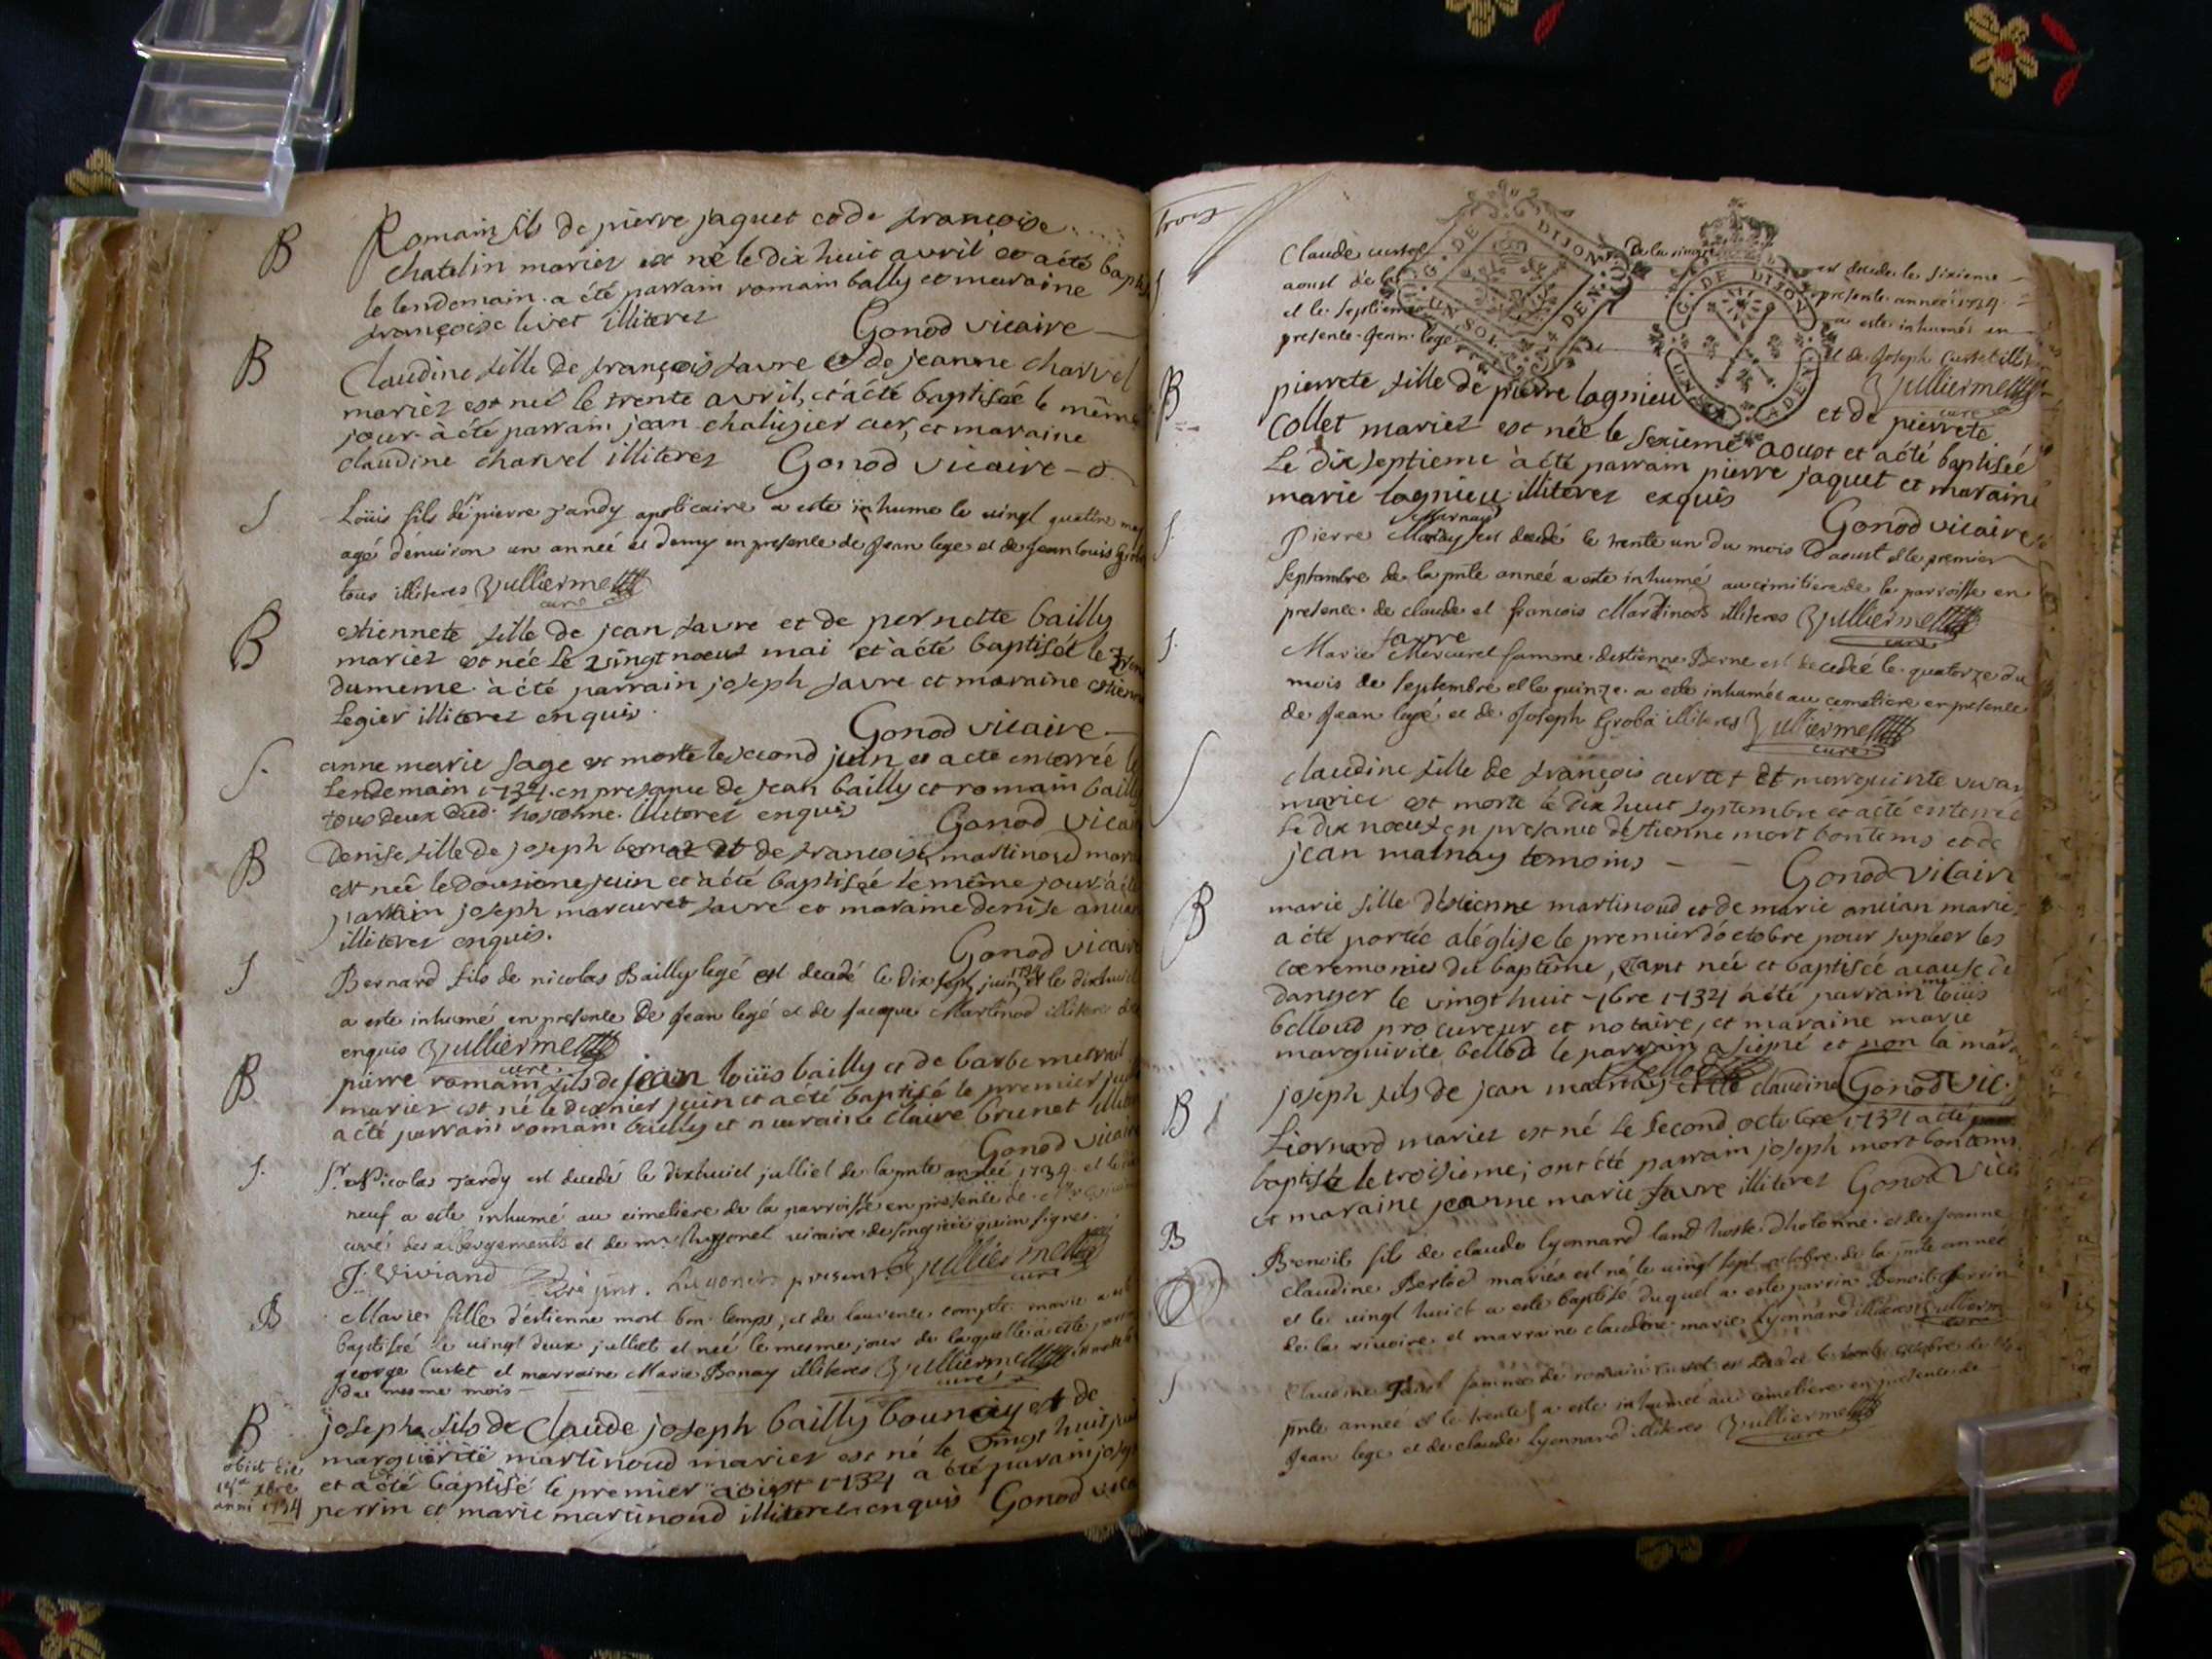 B
Romain fils de pierre jaquet et de françoise
chatelin mariez est né le dix huit avril et a été bapt
le lendemain. a été parrain romain bally et maraine
françoise livet illiterez Gonod vicaire
B
Claudine fille de françois favre et de jeanne charvel
mariez est neé le trente avril, et a été baptiseé le même
jour. a été parrain jean chaligier cler, et maraine
claudine charvel illiterez Gonod vicaire
S
Loüis fils de pierre Jandy apoticaire a este inhume le vingt quatre may
agé d'enuiron un anneé et demy en presence de Jean lege et de Jean louis
tous illiteres Vullierme
curé
B
estiennete fille de jean favre et de pernette bailly
mariez est née le vingt noeuf mai et a été baptisée le
du meme. a été parrain joseph favre et maraine estien
legier illiterez enquis.
Gonod vicaire
S.
anne marie sage est morte le second juin et a été enterrée le
lendemain 1734. en presance de jean bailly et romain bailly
tous deux illiterez enquis
Gonod vicai
B
Denise fille de joseph et de francoise martinoud mari
est neé le dousieme juin et a été baptiseé le même jour. a été
parrain joseph marcuret favre et maraine denise ancian
illiterez enquis.
Gonod vicaire
S
Bernard fils de nicolas Bailly legé est decedé le dix sept juin 1734 et le dixhuict
a este inhumé en presence de Jean legé et de Jacque Martinod illitere
enquis Vullierme
curé
B
pierre romain fils de jean loüis bailly et de barbe metrail
mariez est né le dernier juin et a été baptisé le premier
a été parrain romain bailly et maraine claire brunet illite
Gonod vicaire
S.
Sr. Nicolas Jardy est decedé le dixhuict julliet de la pnte anneé 1734. et le
neuf a este inhumé au cimetiere de la parroisse en presence de
curé des abergements et de mr. vicaire de songieu qui on signes.
J. Viviand present Vullierme
curé
B
Marie fille d'estienne mort bon temps, et de laurence compte marie a
baptiseé le vingt deux julliet et neé le mesme jour de laquelle a este
george Curtet et marraine Marie Bonay illiteres Vullierme
du mesme mois curé
B
joseph fils de Claude joseph bailly bounay et de
marguerite martinoud mariez est né le vingt huit
et a été baptisé le premier aoüst 1734 a été parain jose
perrin et marie martinoud illiterez enquis Gonod vica
obiit die
15a xbre
anni 1734
trois
S
Claude curtet de la est decedé le sixieme
aoust de la presente anneé 1734.
et le septieme a este inhumés en
presence Jean lege et de Joseph Curtet illit
Vullierme
curé
G. DE DIJON
UN SOL 4 DEN
G. DE DIJON
B
pierrete fille de pierre lagnieu et de pierrete
Collet mariez est neé le sesieme aoust et a été baptiseé
le dix septieme a été parrain pierre jaquet et maraine
marie lagnieu illiterez enquis
Gonod vicaire
S.
Marnay
Pierre est decedé le trente un du mois d'aoust et le premier
septambre de la pnte anneé a este inhumé au cimitiere de la parroisse en
presence de claude et francois Martinods illiteres Vullierme
curé
S.
favre
Marie Mercuret famme d'estienne Berne est decedeé le quatorze du
mois de septembre et le quinze a este inhumée au cimetiere en presence
de Jean legé et de Joseph Groba illiteres Vullierme
curé
S
claudine fille de françois curtet et marguerite
mariez est morte le dix huit septembre et a été enterreé
le dix noeuf en presance d'estienne mort bontems et de
jean malnay temoins
Gonod vicaire
B
marie fille d'estienne martinoud et de marie ancian marie
a été portée a l'église le premier d'octobre pour supléer les
cæremonies du baptême, etant neé et baptiseé a cause de
danger le vingt huit 7bre 1734 a été parrain me loüis
belloud procureur et notaire, et maraine marie
marguerite bellod le parrain a signé et non la mara
Bellod Gonod vic.
B
joseph fils de jean malnay et de claudine
Liornard mariez est né le second octobre 1734 a été
baptisé le troisieme; ont été parrain joseph mort bontems
et maraine jeanne marie favre illiterez Gonod vica
B
Benoit fils de claude lyonnard d'holonne et de Jeanne
claudine Bertod mariés est né le vingt sept octobre de la pnte anneé
et le vingt huict a este baptisé duquel a este parrin Benoit Perrin
de la riuoire et marraine claudine marie Lyonnard illiteres Vullierme
curé
S
Claudine famme de romain curtet est decedeé le trente octobre de la
pnte anneé et le trente a este inhumeé au cimetiere en presence de
Jean lege et de claude Lyonnard illiteres Vullierme
curé